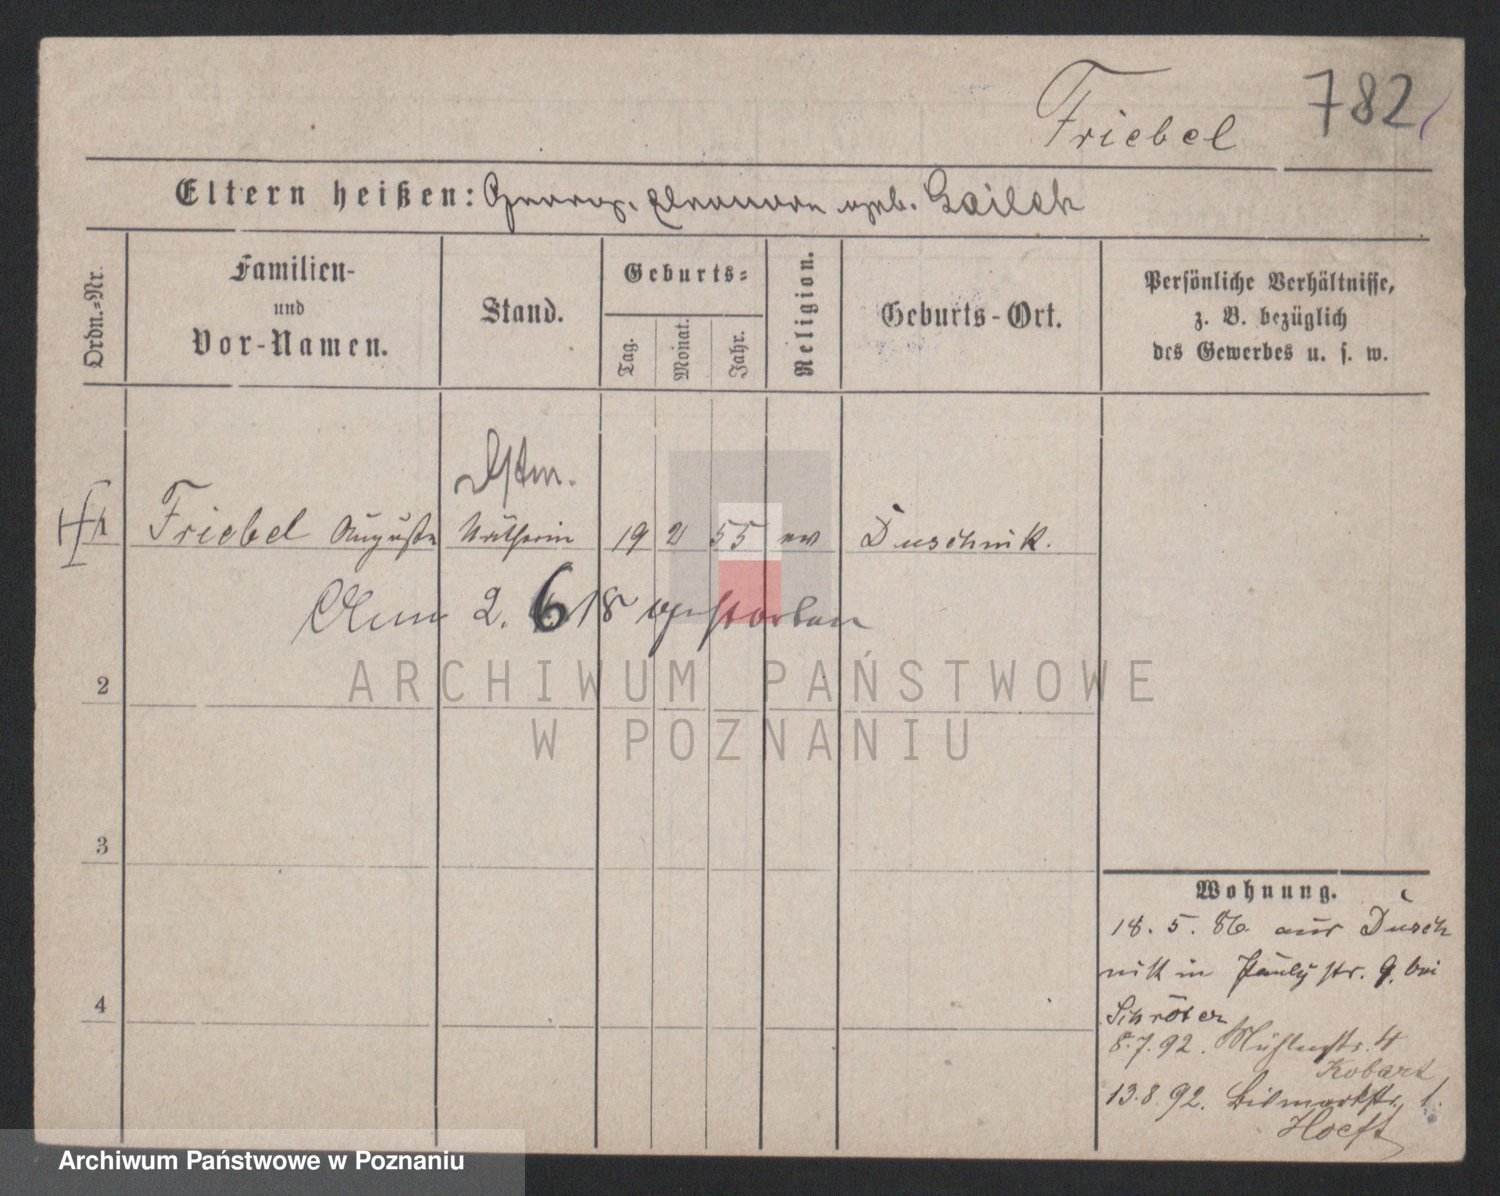 Friebel 782
Eltern heißen: Georg. Eleonore geb. Gailek
Ordn.=Nr.
Familien-
und
Vor-Namen.
Stand.
Geburts=
Tag.
Monat.
Jahr.
Religion.
Geburts-Ort.
Persönliche Verhältnisse,
z. B. bezüglich
des Gewerbes u. s. w.
1 Friebel Auguste Nätherin 19 2 55 ev Duschnik.
2. 6 18 gestorben
2
3
4
Wohnung.
18. 5. 86 aus Dusch
nik in Pauly str. 9. bei
Schröter
8.7.92. Mühlenstr. 4
Kobart
13.8.92. Bismarkstr. 1.
Hoeft
ARCHIWUM PAŃSTWOWE
W POZNANIU
Archiwum Państwowe w Poznaniu